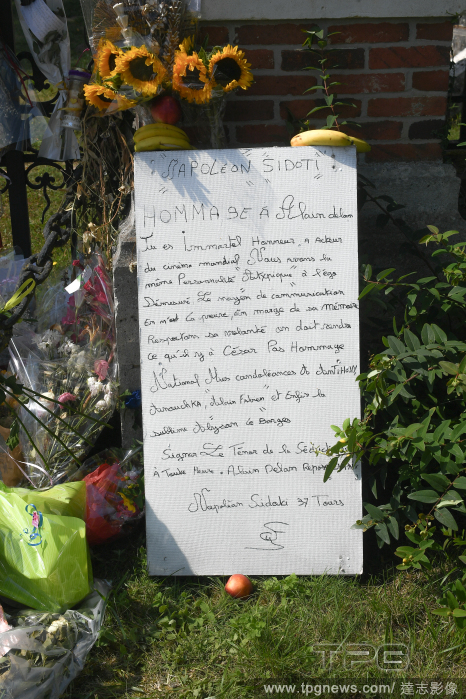 "NAPOLÉON SIDOTI"
HOMMAGE A Alain delon
Tu es Immortel Honneur, A Acteur
du cinéma mondial Nous avons la
même Personnalité "Atypique" à l'égo
Démesuré Le moyen de communication
En n'est la preuve, En marge de sa Mémoire
Respectons sa volonté on doit rendre
ce qu'il y à César Pas Hommage
National Mes condoléances
Anouchka, Alain Fabien et Enfin la
sublime
Signer Le Ténor de la
À Toute Heure. Alain Delon
Napoléon Sidoti 37 Tours
TPG
www.tpgnews.com/達志影像